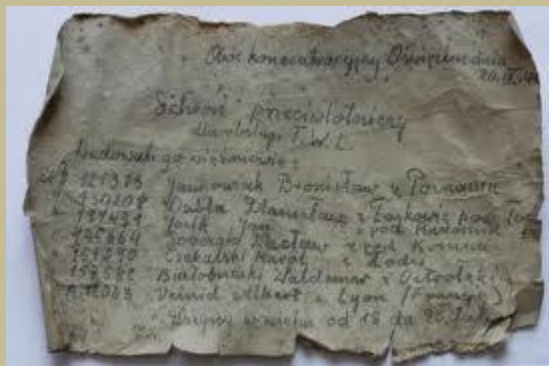 Obóz koncentracyjny Oświęcim dnia
20.IX.44
Schron przeciwlotniczy
dla obsługi T.W.L.
budowali go więźniowie:
121313 Jankowiak Bronisław z Poznania
130208 Dubla Stanisław z Łaskowic pow.
131491 Jasik Jan z pod Radomia
145664 Sobczak Wacław z pod Konina
151090 Czekalski Karol z Łodzi
157582 Białobrzeski Waldemar z Ostrołęki
A12063 Veissid Albert z Lyon (Francja)
Wszyscy w wieku od 18 do 20 lat